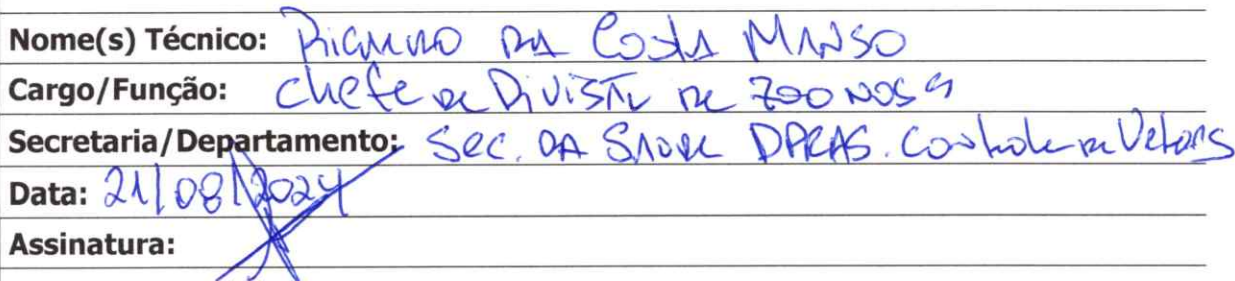 Nome(s) Técnico: Ricardo da Costa Manso
Cargo/Função: Chefe de Divisão de Zoonoses
Secretaria/Departamento: Sec. da Saúde DPRAS. Controle de Vetores
Data: 21/08/2024
Assinatura: